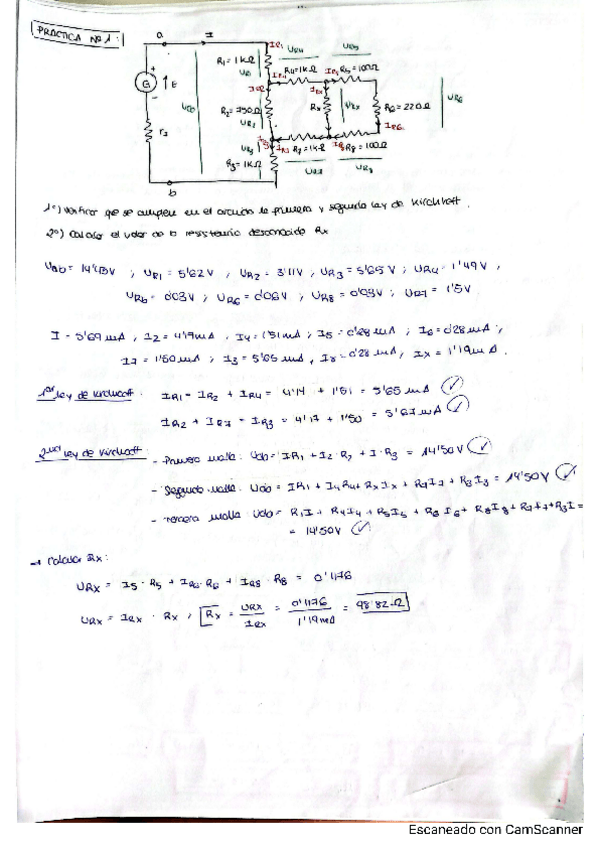 PRACTICA Nº1:
a
I
IR1
R1 = 1KΩ
UR1
UR4
UR5
IR4
R4=1KΩ
IR5
R5=100Ω
+
G
E
-
Uab
IR2
R2=750Ω
UR2
IRx
Rx
URx
R6=220Ω
UR6
IR6
I3
UR3
R3=1KΩ
IR7
R7=1KΩ
IR8
R8=100Ω
UR7
UR8
b
1º) Verificar que se cumplen en el circuito la primera y segunda ley de Kirchhoff.
2º) Calcular el valor de la resistencia desconocida Rx
UR1 = 5'62V , UR2 = 3'11V ; UR3 = 5'65V ; UR4 = 1'49V ,
UR6 = 0'06V ; UR8 = 0'03V ; UR7 = 1'5V
I = 5'69mA , I2 = 4'19mA , I4 = 1'51mA ; I5 = 0'28mA ; I6 = 0'28mA ,
I7 = 1'50mA ; I3 = 5'65mA , I8 = 0'28mA , Ix = 1'19mA .
1ª ley de Kirchhoff : IR1 = IR2 + IR4 = 4'14 + 1'51 = 5'65mA
IR2 + IR7 = IR3 = 4'17 + 1'50 = 5'67mA
2nd ley de Kirchhoff : - Primera malla: Uab = IR1 + I2·R2 + I·R3 = 14'50V
- Segunda malla: Uab = IR1 + I4R4 + RxIx + R7I7 + R3I3 = 14'50V
- Tercera malla: Uab = R1I + R4I4 + R5I5 + R6I6 + R8I8 + R7I7 + R3I =
= 14'50V
→ Calcular Rx:
URx = I5·R5 + IR6·R6 + IR8·R8 = 0'1176
URx = IRx · Rx , Rx = URx / IRx = 0'1176 / 1'19mA = 98'82Ω
Escaneado con CamScanner